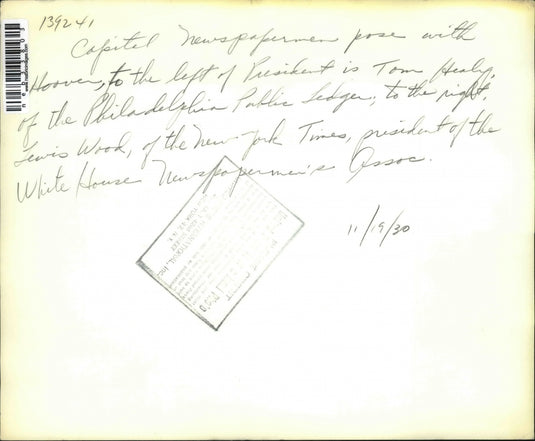 139241
Capital Newspapermen pose with
Hoover, to the left of President is Tom Healy,
of the Philadelphia Public Ledger; to the right,
Lewis Wood, of the New York Times, president of the
White House Newspapermen's Assoc.
11/19/30
INTERNATIONAL, Inc.